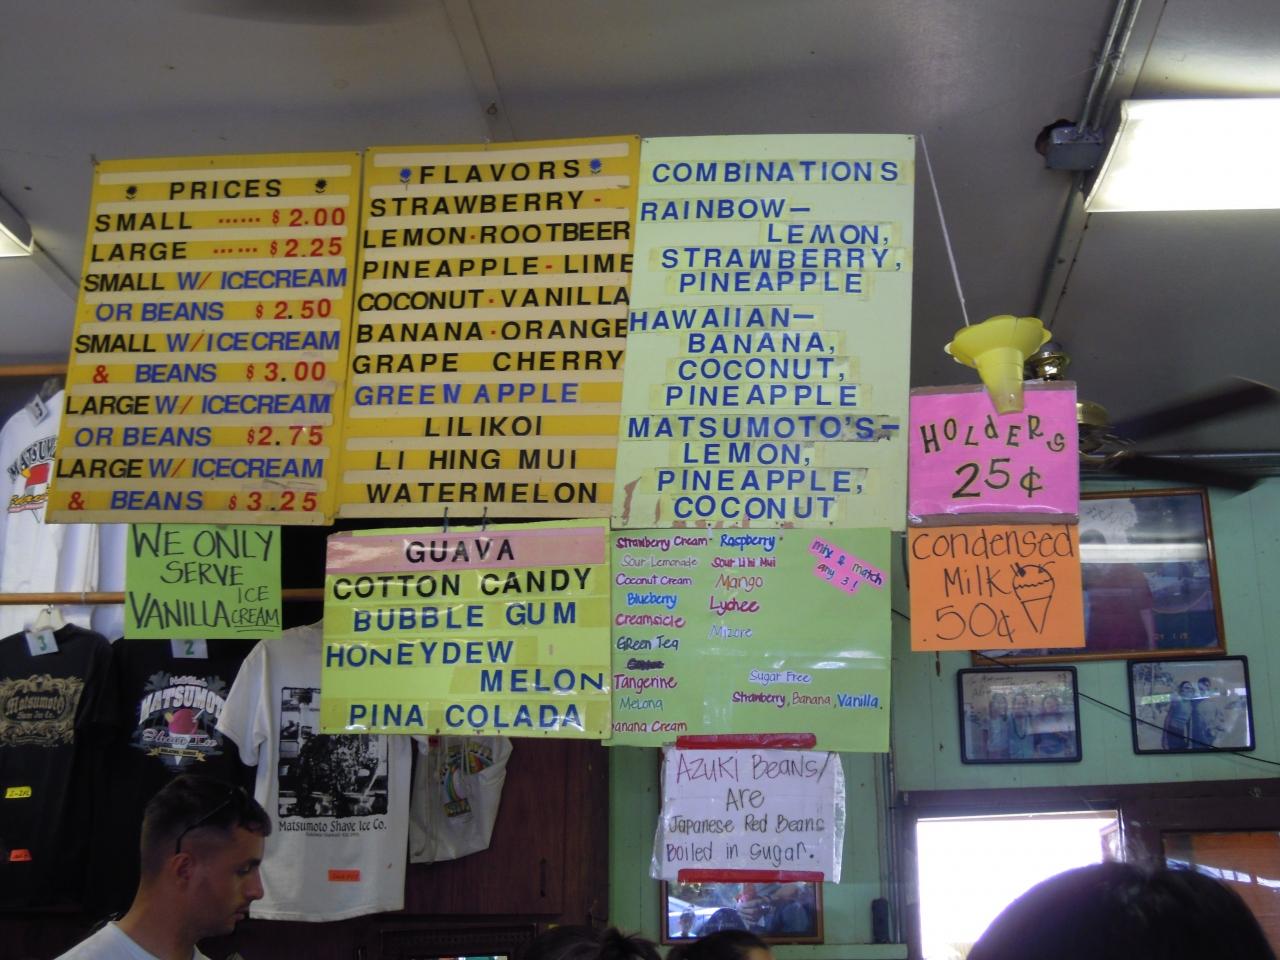 PRICES
SMALL ...... $2.00
LARGE ...... $2.25
SMALL W/ ICECREAM
OR BEANS $2.50
SMALL W/ICECREAM
& BEANS $3.00
LARGE W/ ICECREAM
OR BEANS $2.75
LARGE W/ ICECREAM
& BEANS $3.25
WE ONLY
SERVE
VANILLA ICE
CREAM
FLAVORS
STRAWBERRY -
LEMON·ROOTBEER
PINEAPPLE - LIME
COCONUT·VANILLA
BANANA·ORANGE
GRAPE CHERRY
GREEN APPLE
LILIKOI
LI HING MUI
WATERMELON
GUAVA
COTTON CANDY
BUBBLE GUM
HONEYDEW
MELON
PINA COLADA
COMBINATIONS
RAINBOW—
LEMON,
STRAWBERRY,
PINEAPPLE
HAWAIIAN—
BANANA,
COCONUT,
PINEAPPLE
MATSUMOTO'S—
LEMON,
PINEAPPLE,
COCONUT
Strawberry Cream Raspberry
Sour Lemonade Sour Li Hi Mui
Coconut Cream Mango
Blueberry Lychee
Creamsicle
Green Tea Mizore
Tangerine
Melona
Banana Cream
mix & match
any 3!
Sugar Free
Strawberry, Banana, Vanilla.
AZUKI BEANS/
Are
Japanese Red Beans
Boiled in Sugar.
HOLDERS
25¢
Condensed
Milk
.50¢
3
2
Matsumoto
MATSUMOTO
Matsumoto Shave Ice Co.